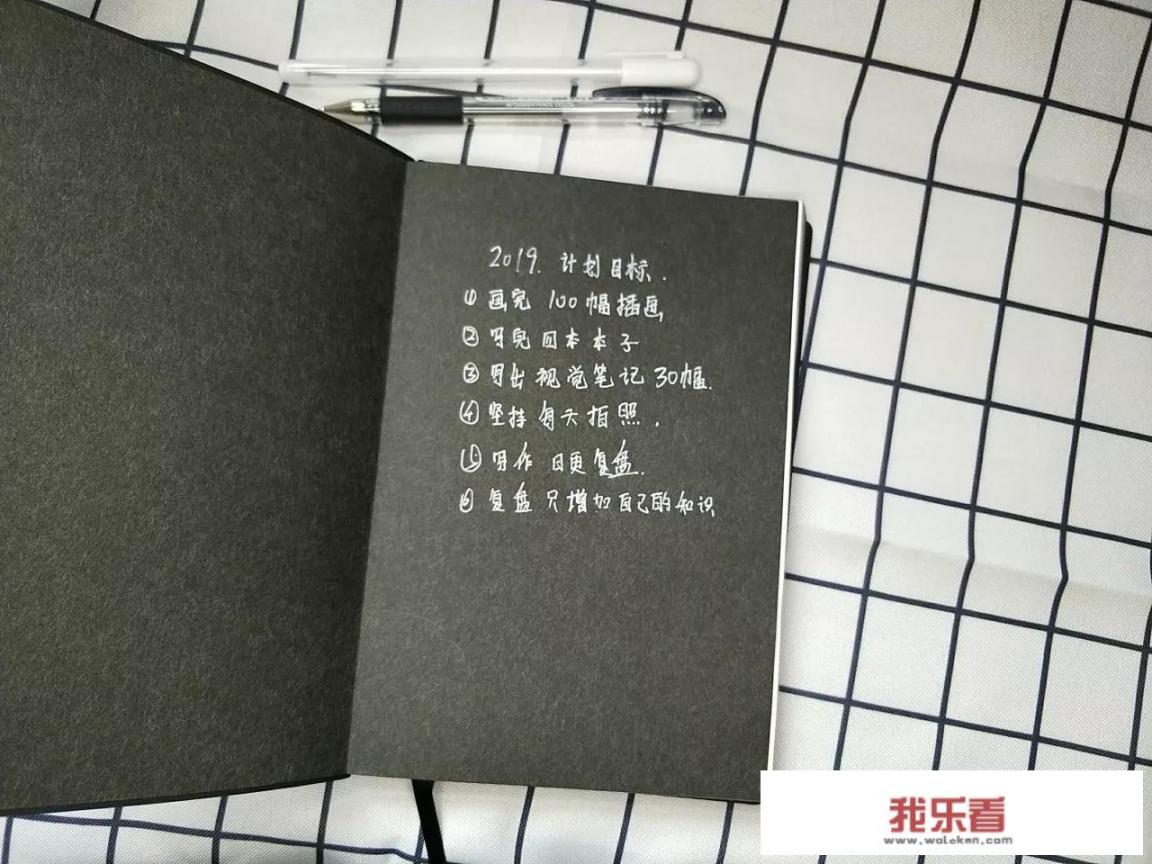 2019. 计划目标.
① 画完 100幅插画
② 写完 四本本子
③ 写出 视觉笔记 30幅.
④ 坚持 每天拍照.
⑤ 写作 日更复盘.
⑥ 复盘 只增加自己的知识
我乐看
www.woleken.com